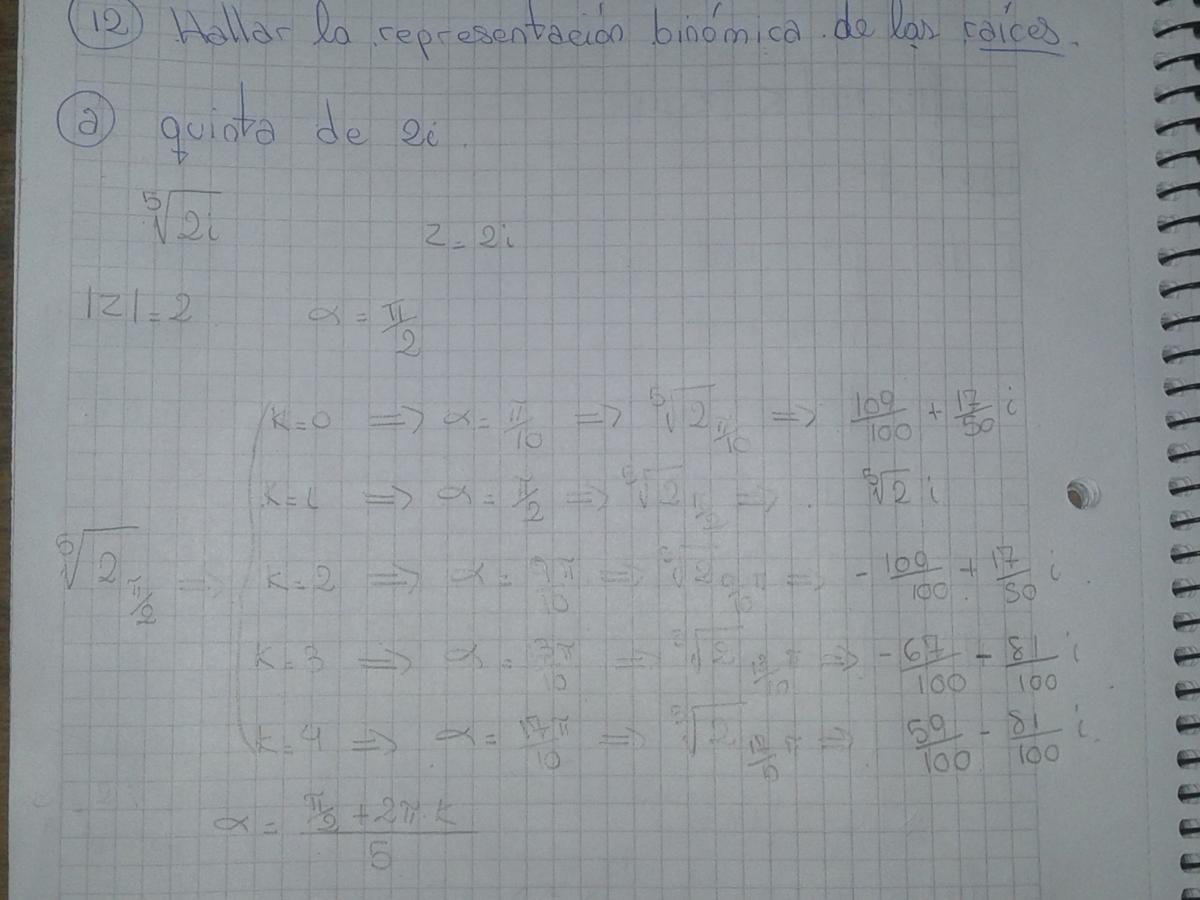 12 Hallar la representación binómica de las raíces.
a quinta de 2i.
⁵√2i z = 2i
|z| = 2 α = π/2
k=0 ⟹ α = π/10 ⟹ ⁵√2 π/10 ⟹ 109/100 + 17/50 i
k=1 ⟹ α = π/2 ⟹ ⁵√2 π/2 ⟹ ⁵√2 i
⁵√2 π/2 ⟹ k=2 ⟹ α = 9π/10 ⟹ ⁵√2 9/10 π ⟹ - 109/100 + 17/50 i
k=3 ⟹ α = π/10 ⟹ ⁵√2 π ⟹ - 67/100 - 81/100 i
k=4 ⟹ α = 17π/10 ⟹ ⁵√2 π ⟹ 59/100 - 81/100 i
α = π/2 + 2π·k / 5